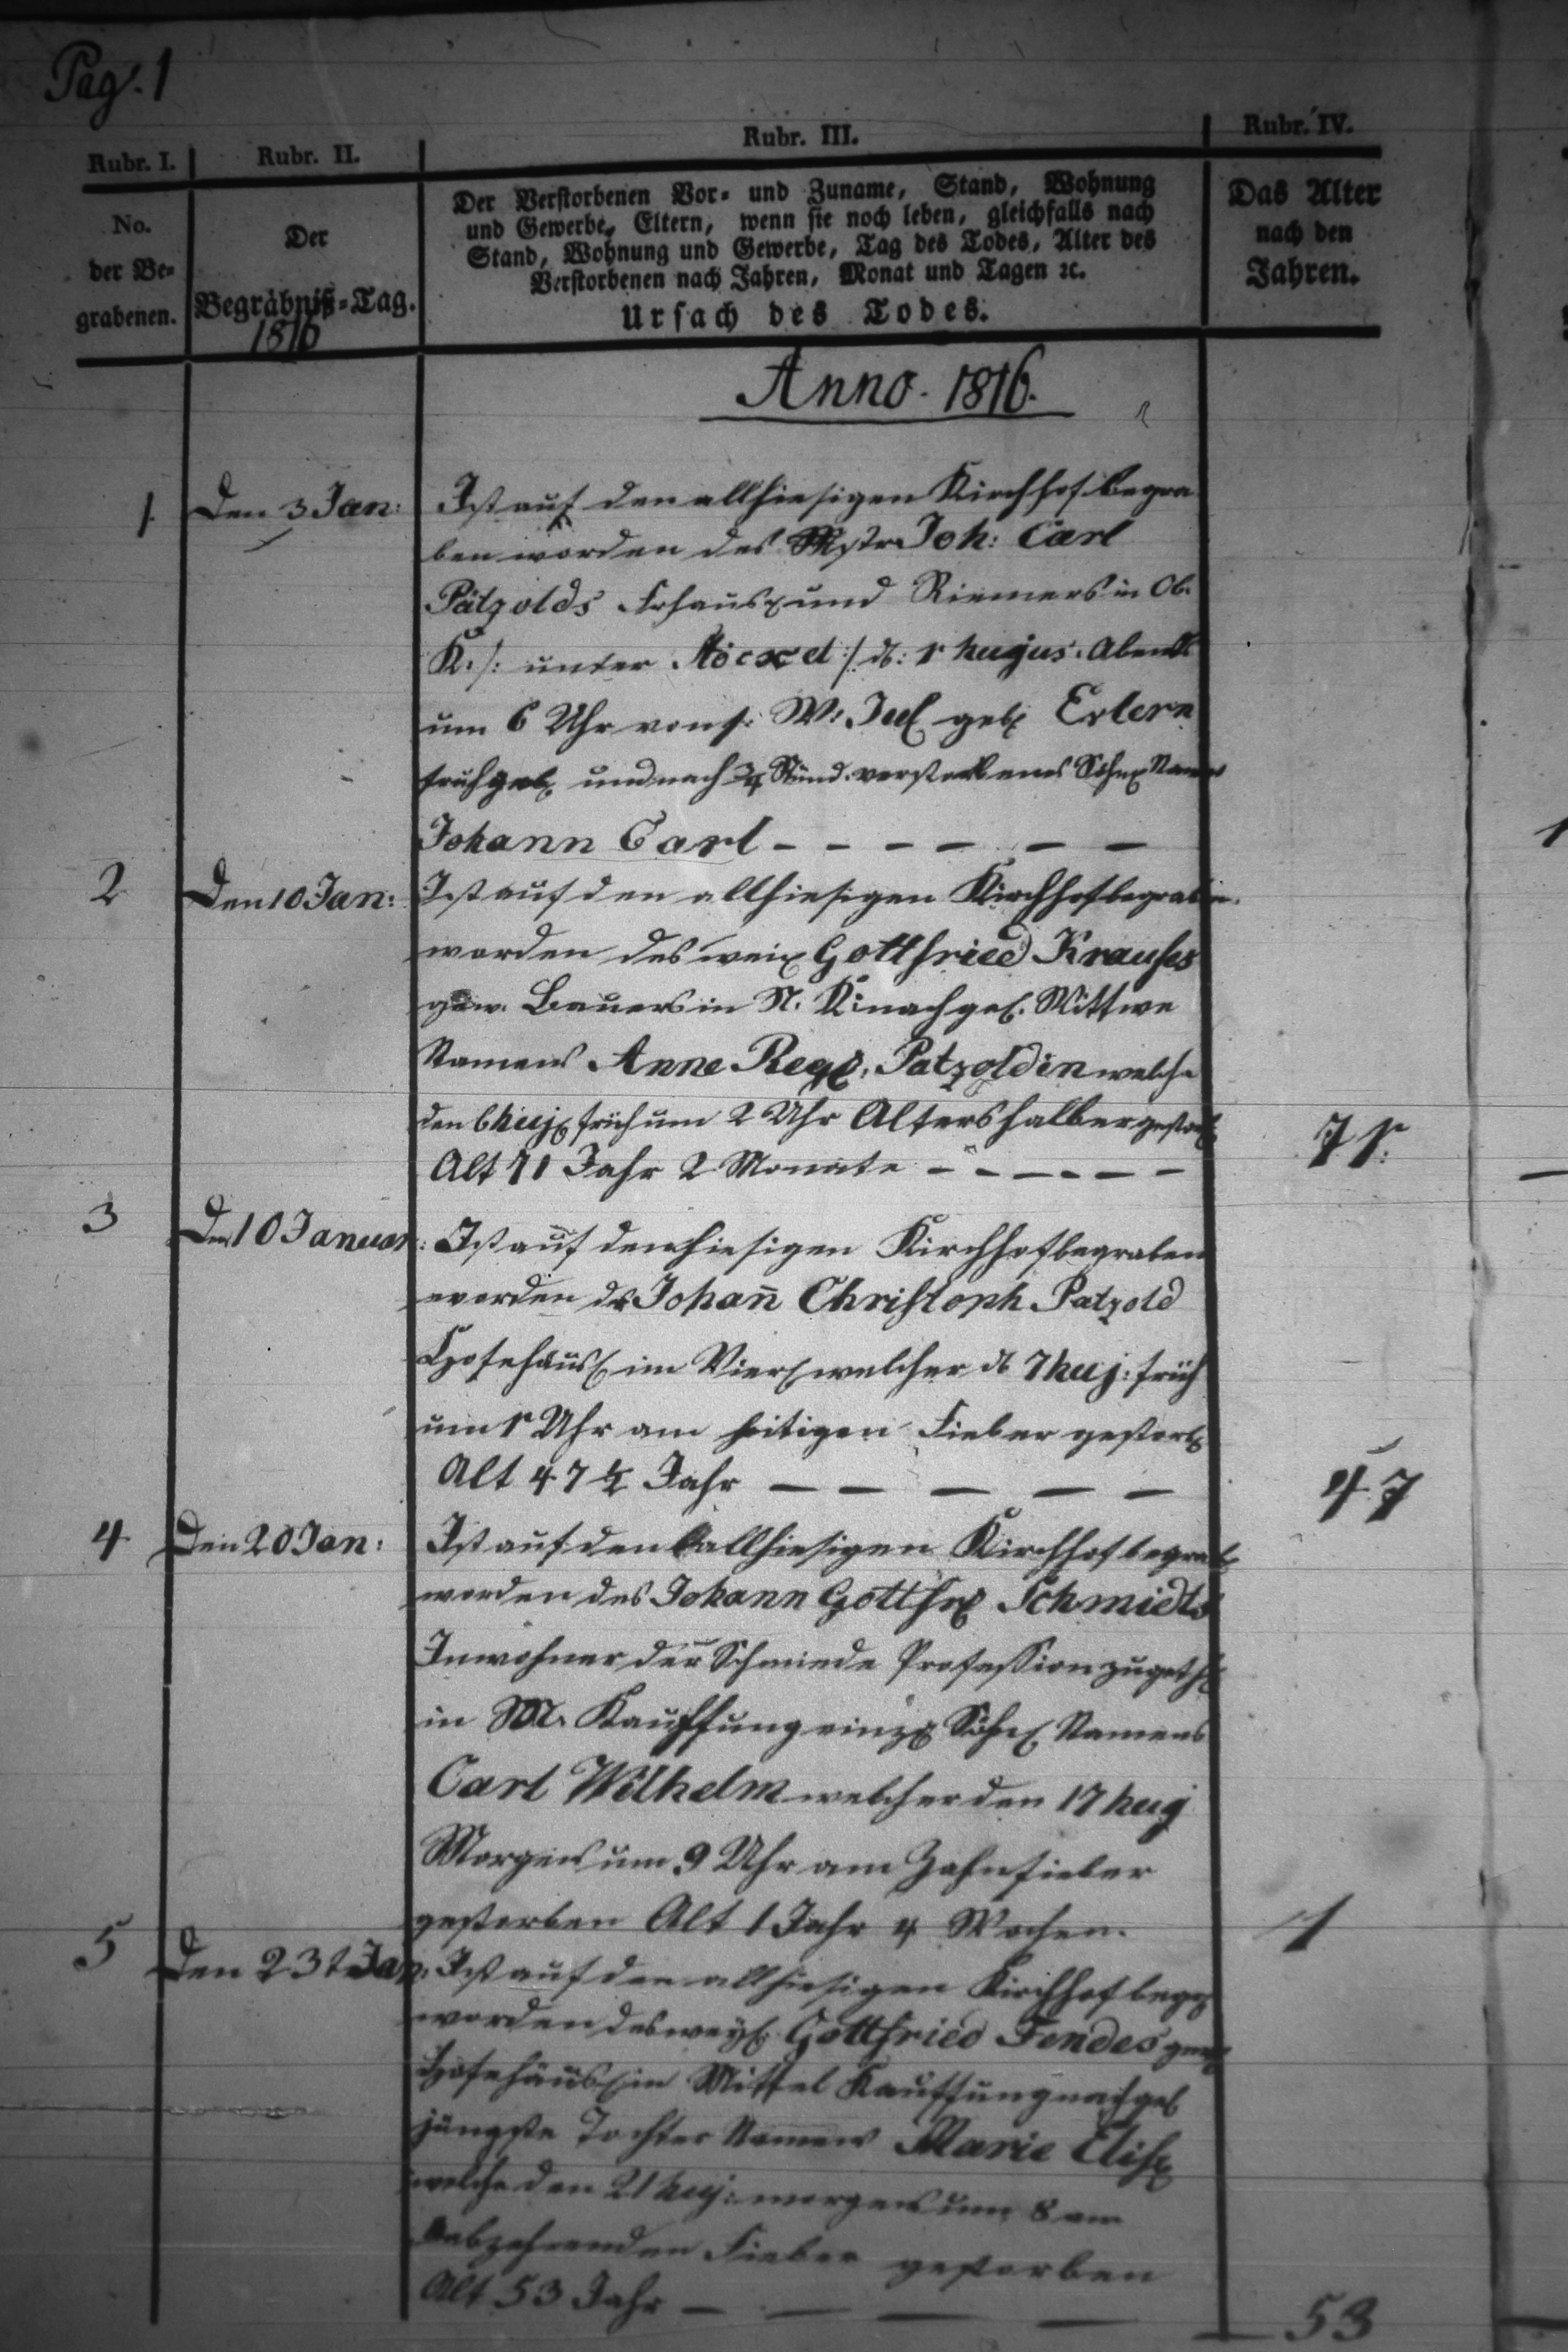 Pag. 1
Rubr. I. Rubr. II. Rubr. III. Rubr. IV.
No. der Be-grabenen.
Der Begräbniß-Tag.
1816
Der Verstorbenen Vor- und Zuname, Stand, Wohnung
und Gewerbe, Eltern, wenn sie noch leben, gleichfalls nach
Stand, Wohnung und Gewerbe, Tag des Todes, Alter des
Verstorbenen nach Jahren, Monat und Tagen ꝛc.
Ursach des Todes.
Das Alter
nach den
Jahren.
Anno. 1816.
1. Den 3 Jan: Ist auf den allhiesigen Kirchhof begra
ben worden des Mstr Joh: Carl
Pätzolds und Riemers in Ob.
K. /: unter :/ d: 1 hujus. Abends
um 6 Uhr von s: W: geb Exlern
früh geb und nach 3/4 Stund. verstorbenes Söhn Namens
Johann Carl - - - - - -
2 Den 10 Jan: Ist auf den allhiesigen Kirchhof begraben
worden des weil Gottfried Krauses
gew. Bauers in N. K: nachgel. Wittwe
Namens Anne Rega. Patzoldin welche
den 6 huj früh um 2 Uhr Altershalber gestorb
Alt 71 Jahr 2 Monate - - - - - - 71.
3 Den 10 Januar: Ist auf den hiesigen Kirchhof begraben
worden dr Johan̄ Christoph Patzold
Hofehäus im Vier welcher d 7 huj: früh
um 1 Uhr am hitigen Fieber gestorb
Alt 47 1/2 Jahr - - - - - 47
4 Den 20 Jan: Ist auf den allhiesigen Kirchhof begrab
worden des Johann Gottfr Schmidts
Inwohner der Schmiede Profession zugeth
in M. Kauffung einz Söhn Namens
Carl Wilhelm welcher den 17 huj
Morgens um 9 Uhr am Zahnfieber
gestorben Alt 1 Jahr 4 Wochen. 1
5 Den 23t Jan: Ist auf den allhiesigen Kirchhof begr
worden des weyl. Gottfried Fendes gew
Hofehäus in Mittel Kauffung nachgel
jüngste Tochter Namens Marie Elis
welche den 21 huj: morgens um 8 am
abzehrenden Fieber gestorben
Alt 53 Jahr - - - - 53